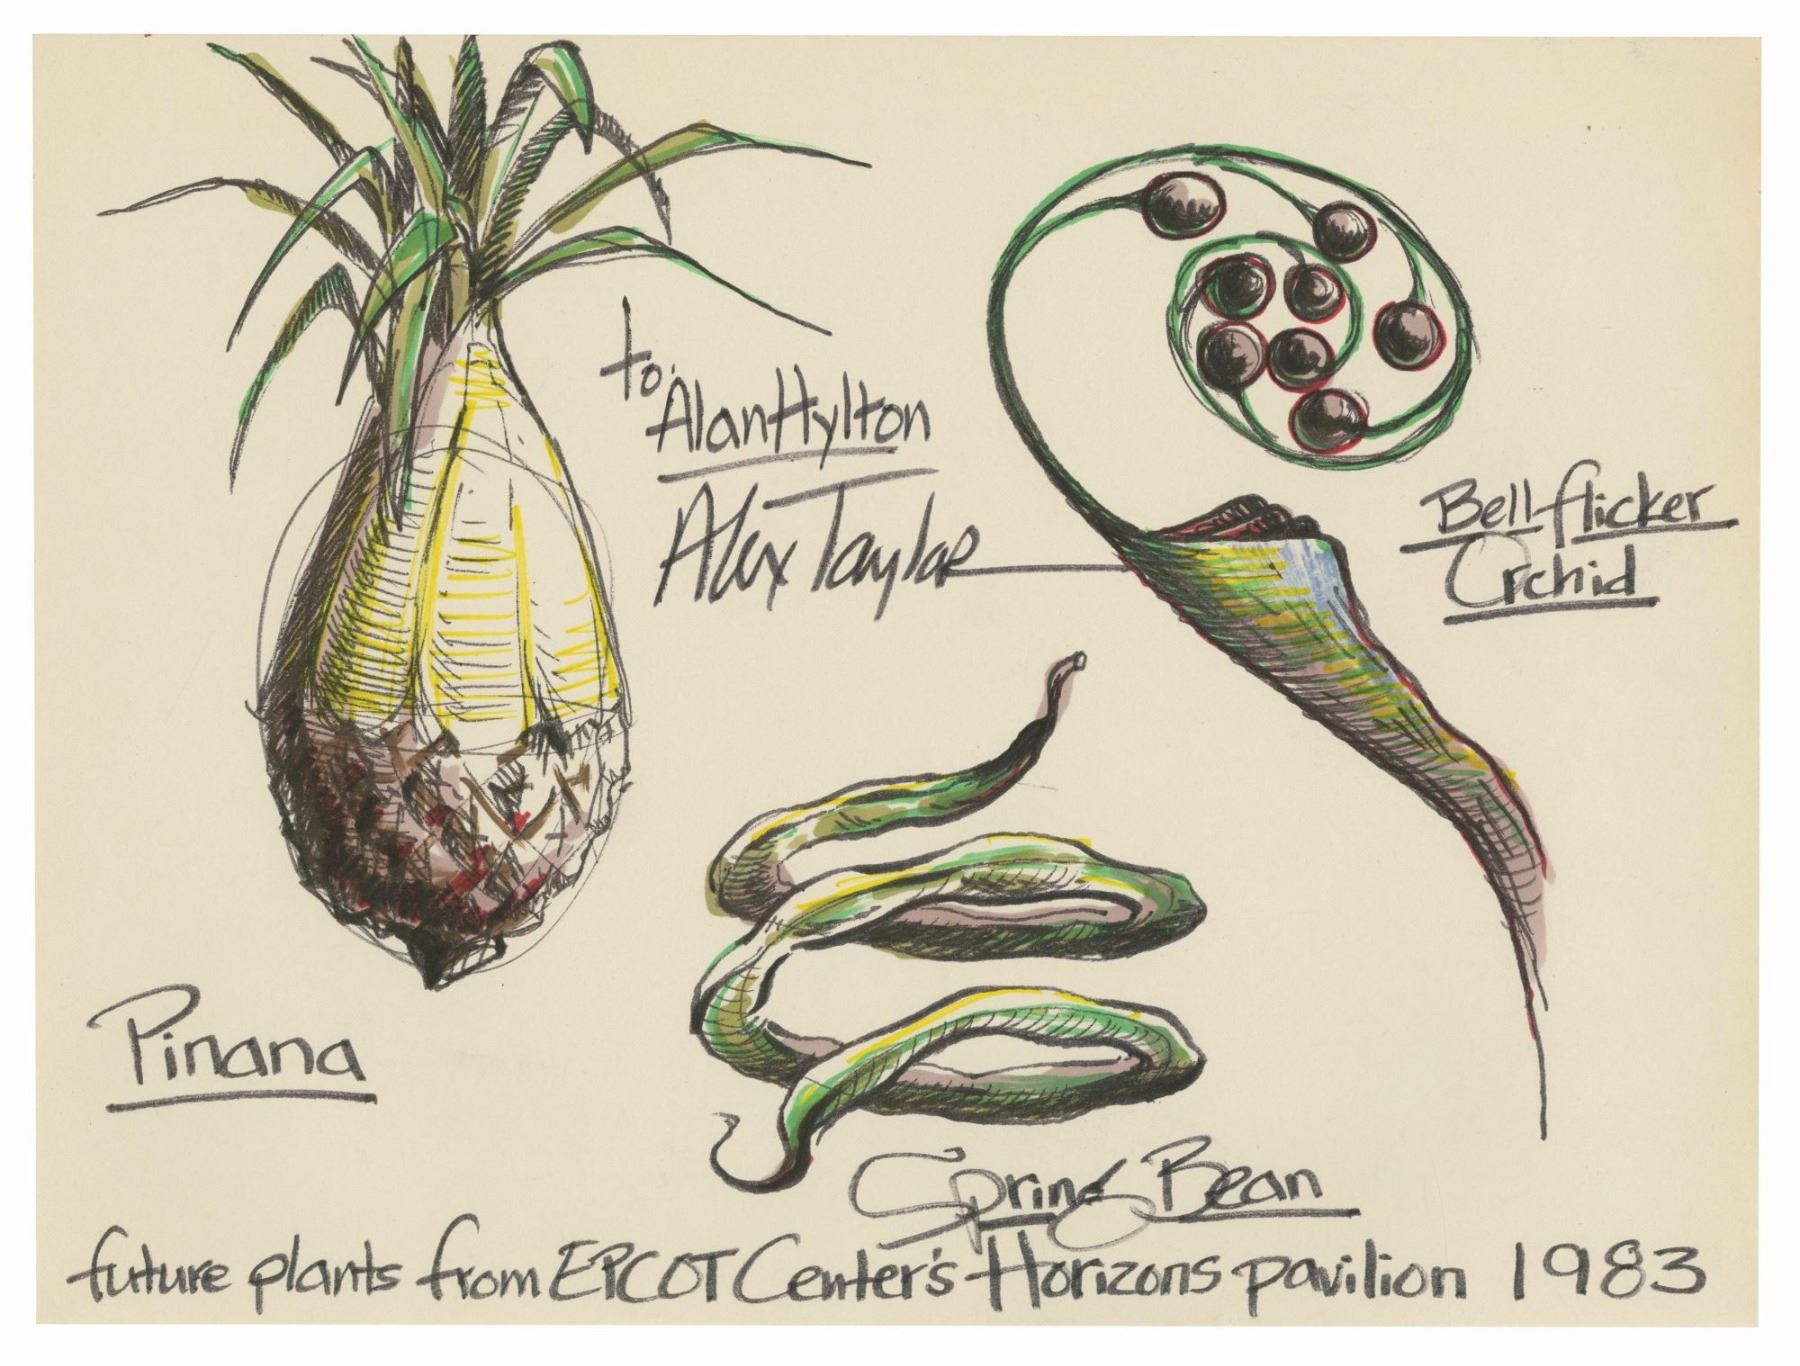 to:
Alan Hylton
Alex Taylor
Bell flicker
Orchid
Pinana
Spring Bean
future plants from EPCOT Center's Horizons pavilion 1983